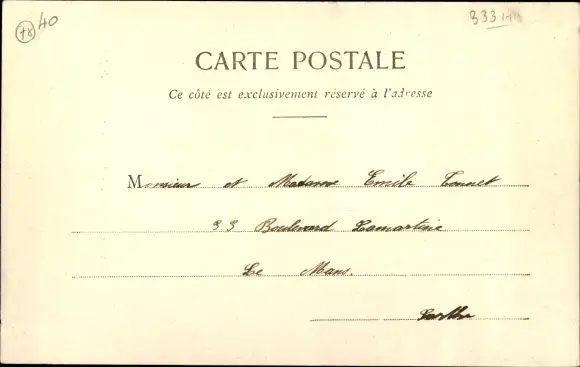 78 40
333
CARTE POSTALE
Ce côté est exclusivement réservé à l'adresse
Monsieur et Madame Emile Tonnet
33 Boulevard Lamartine
Le Mans.
Sarthe